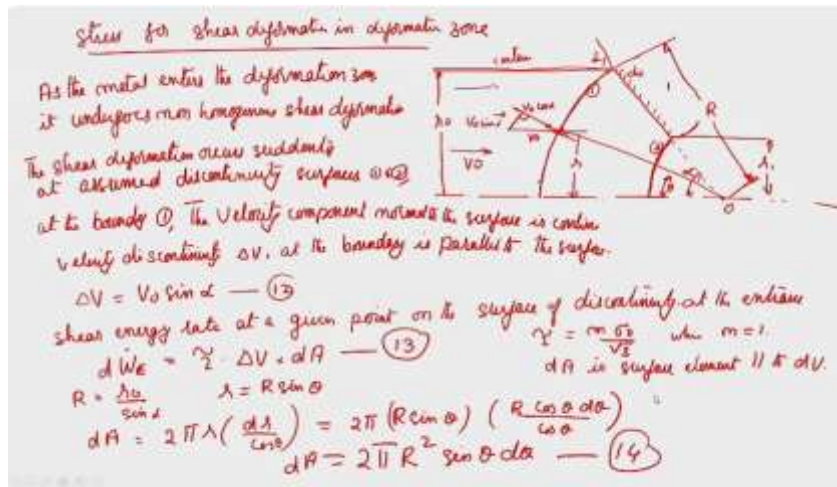 Stress for shear deformation in deformation zone
As the metal enters the deformation zone
it undergoes non homogenous shear deformation
The shear deformation occurs suddenly
at assumed discontinuity surfaces ① & ②
at the boundy ①, The velocity component normal to the surface is contin
velocity discontinuity ΔV, at the boundary is parallel to the surface.
ΔV = V0 sin α — ⑫
shear energy rate at a given point on the surface of discontinuity at the entrance
dẆE = τ · ΔV · dA — ⑬
τ = m σ0/√3 when m=1
dA is surface element // to dV.
R = r0/sin α r = R sin θ
dA = 2π r (dr/cos θ) = 2π (R sin θ) (R cos θ dθ/cos θ)
dA = 2π R² sin θ dθ — ⑭
r0
V0
①
②
r
R
0